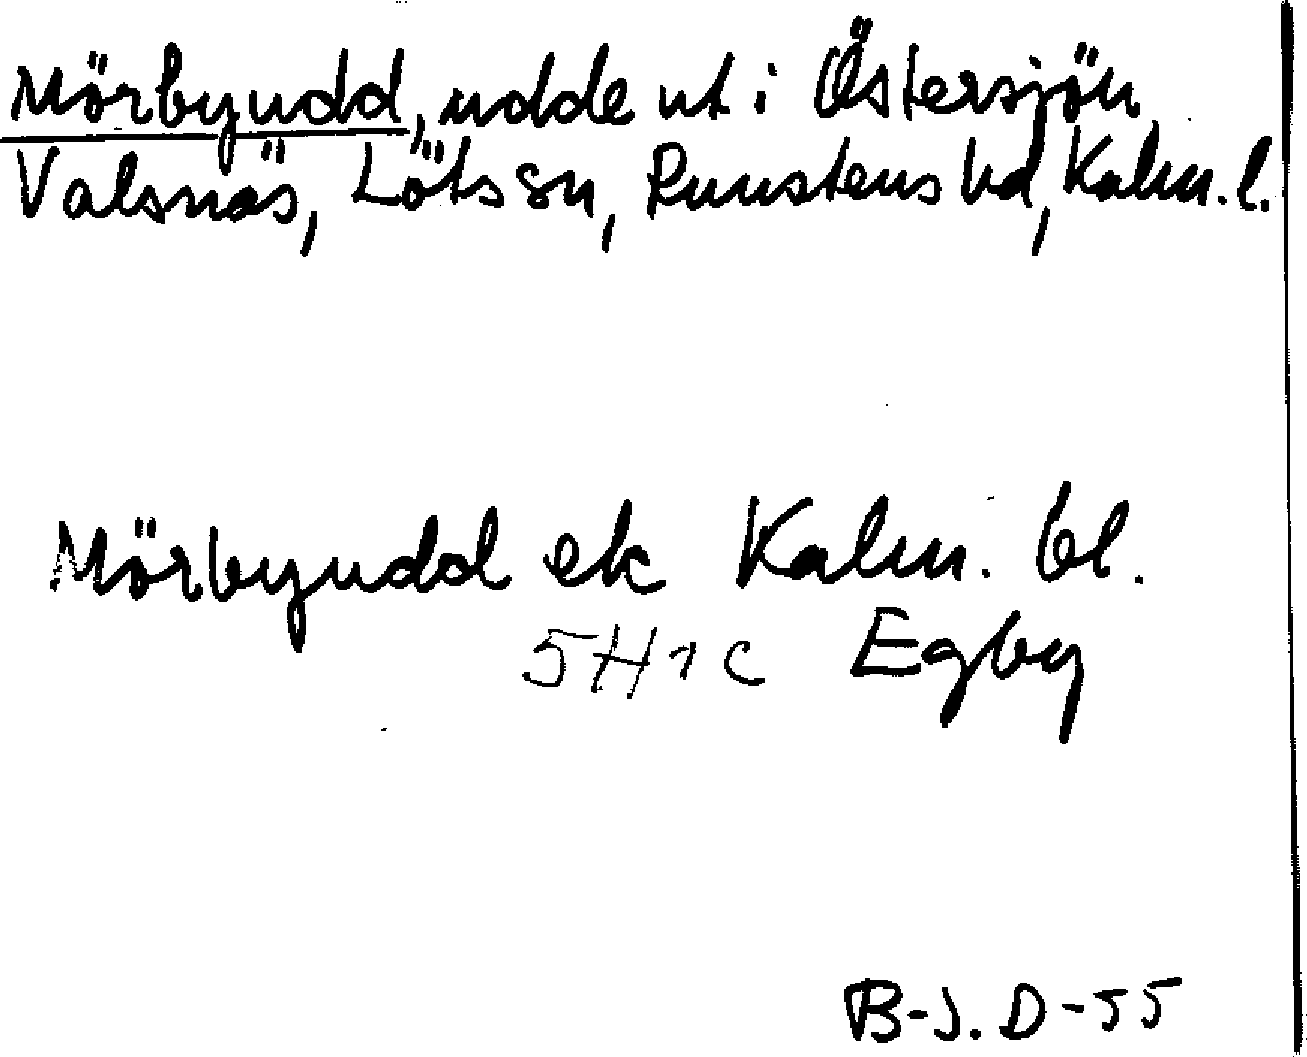 Mörbyudd, udde ut i Östersjön
Valsnäs, Löts sn, Runstens hd, Kalm. l.
Mörbyudd ek Kalm. bl.
5H1c Egby
B-J. D-55